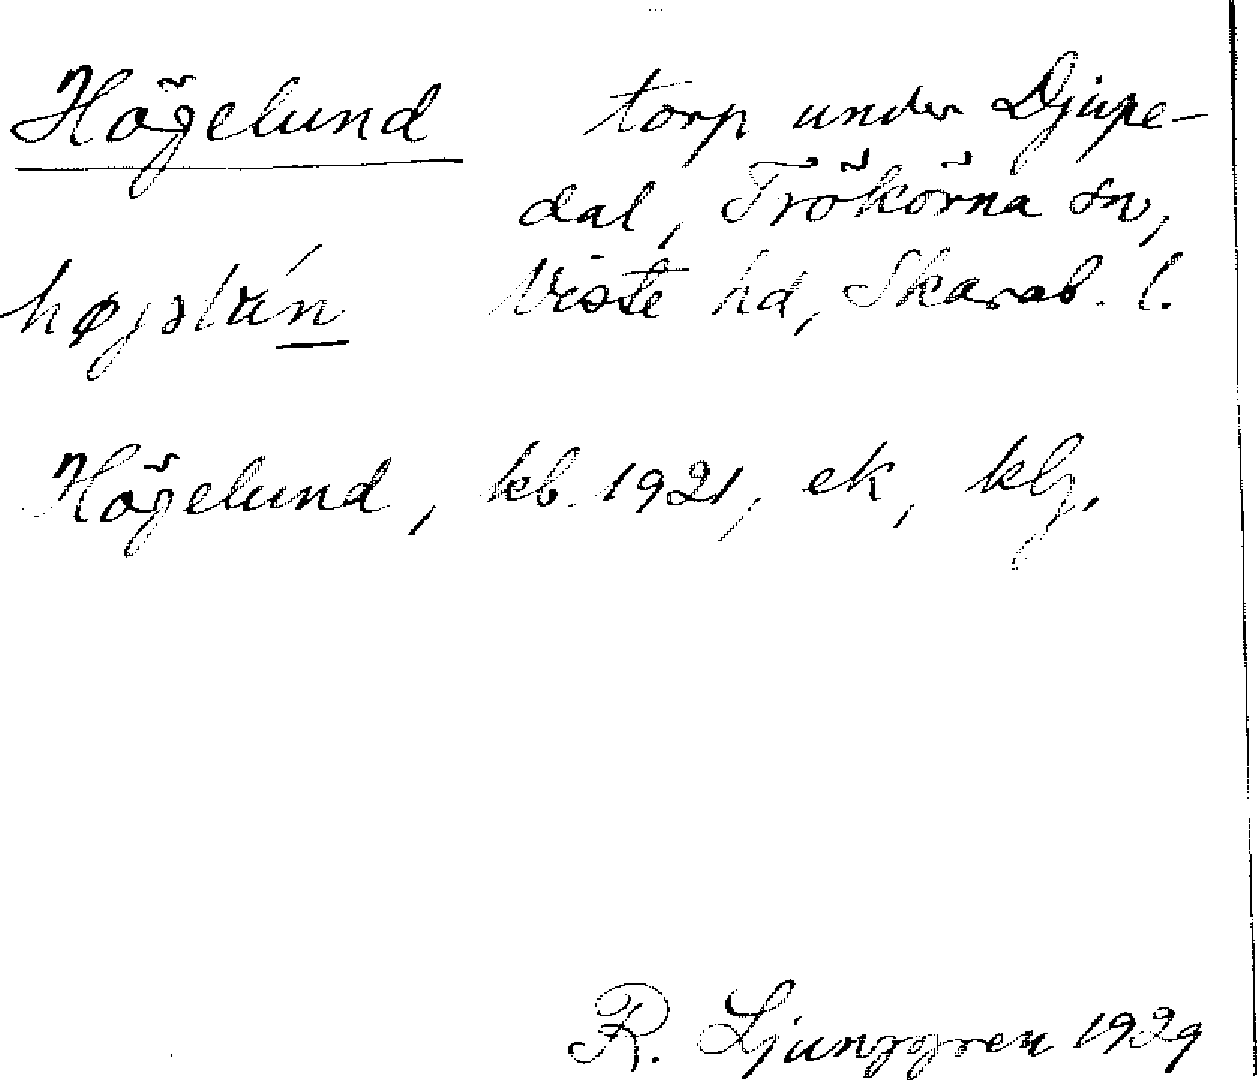 Högelund torp under Djupe-
dal, Trökörna sn,
Viste hd, Skarab. l.
Högelund, kb. 1921, ek, klj.
R. Ljunggren 1929